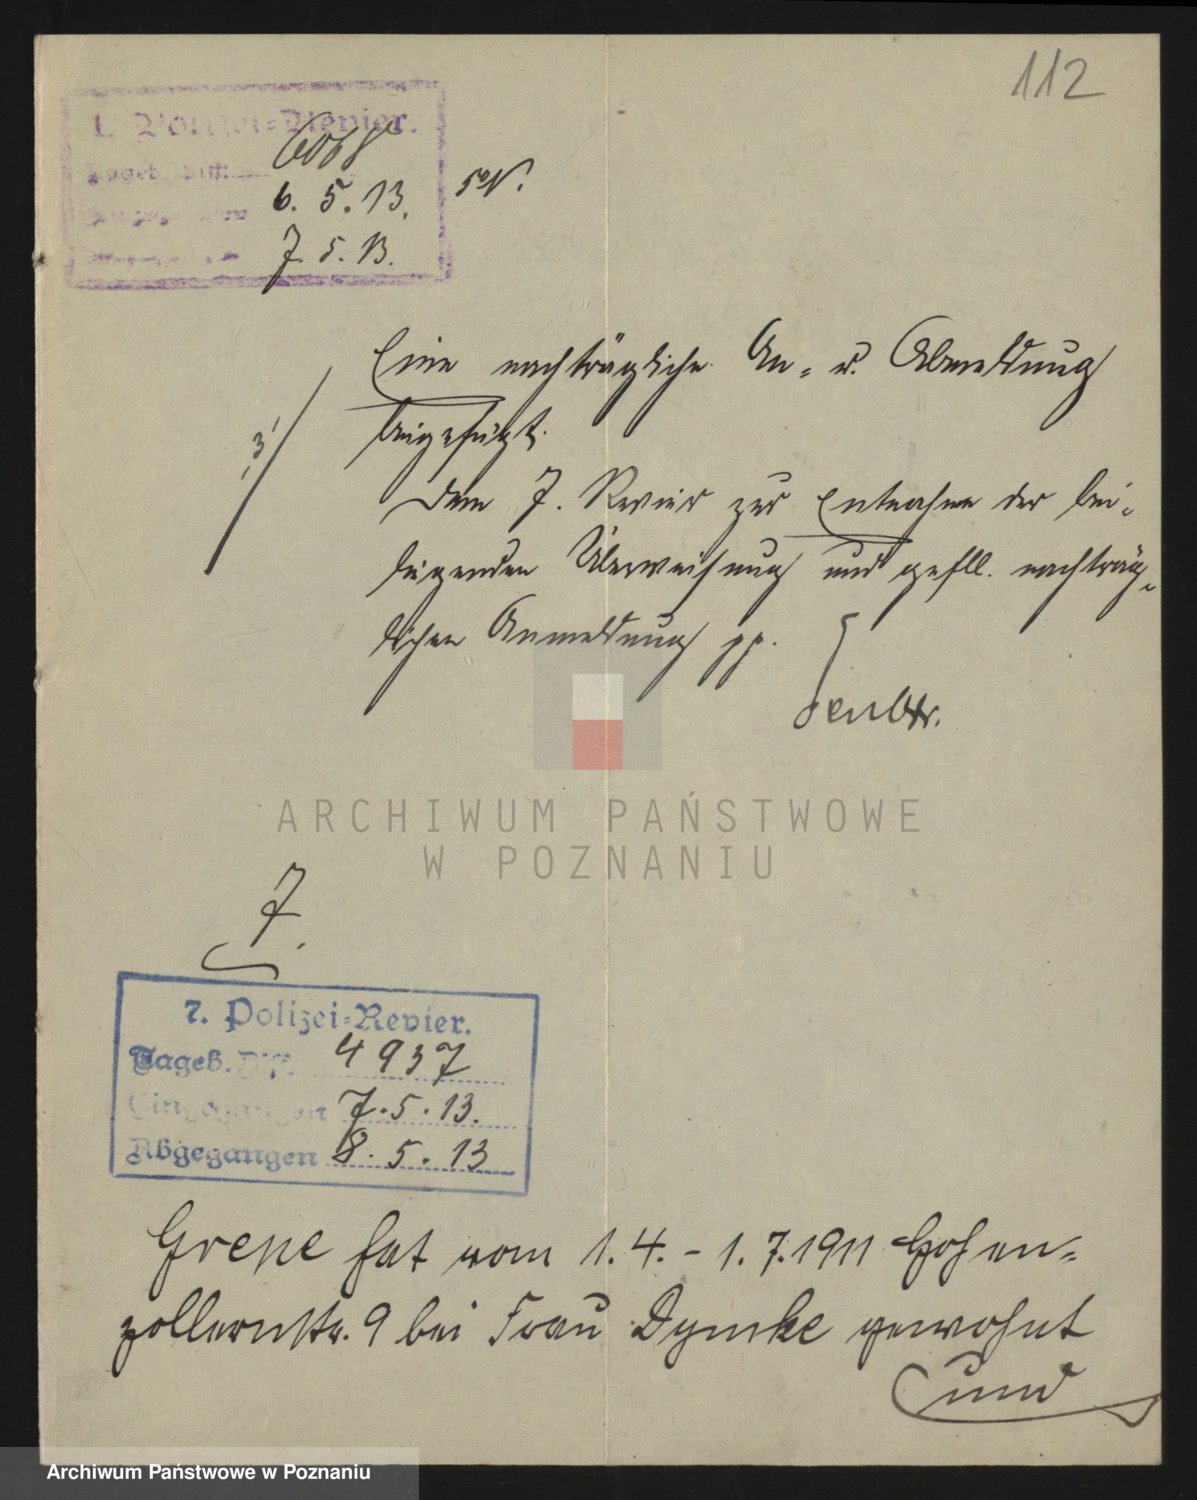 112
1. Polizei-Revier.
6068
6. 5. 13.
7. 5. 13.
Eine nachträgliche An- u. Abmeldung
beigefügt.
Dem 7. Revier zur Entnahme der bei-
liegenden Überweisung und gefll. nachträg-
lichen Anmeldung pp.
3
ARCHIWUM PAŃSTWOWE
W POZNANIU
7.
7. Polizei-Revier.
Tageb. 4937
Eingegangen 7.5.13.
Abgegangen 8.5.13
hat vom 1.4.-1.7.1911 Hohen-
zollernstr. 9 bei Frau Dymke gewohnt
und
Archiwum Państwowe w Poznaniu